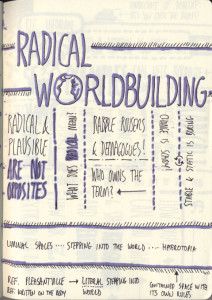 RADICAL
WORLDBUILDING
RADICAL &
PLAUSIBLE
ARE NOT
OPPOSITES
WHAT DOES RADICAL MEAN?
RABBLE ROUSERS
& DEMAGOGUES!
WHO OWNS THE
TERM?
STABLE & STATIC IS BORING
LIMINAL SPACES .... STEPPING INTO THE WORLD ... HETEROTOPIA
REF. PLEASANTVILLE → LITERAL STEPPING INTO
REF. WRITTEN ON THE BODY WORLD
CONTAINED SPACE WITH
ITS OWN RULES